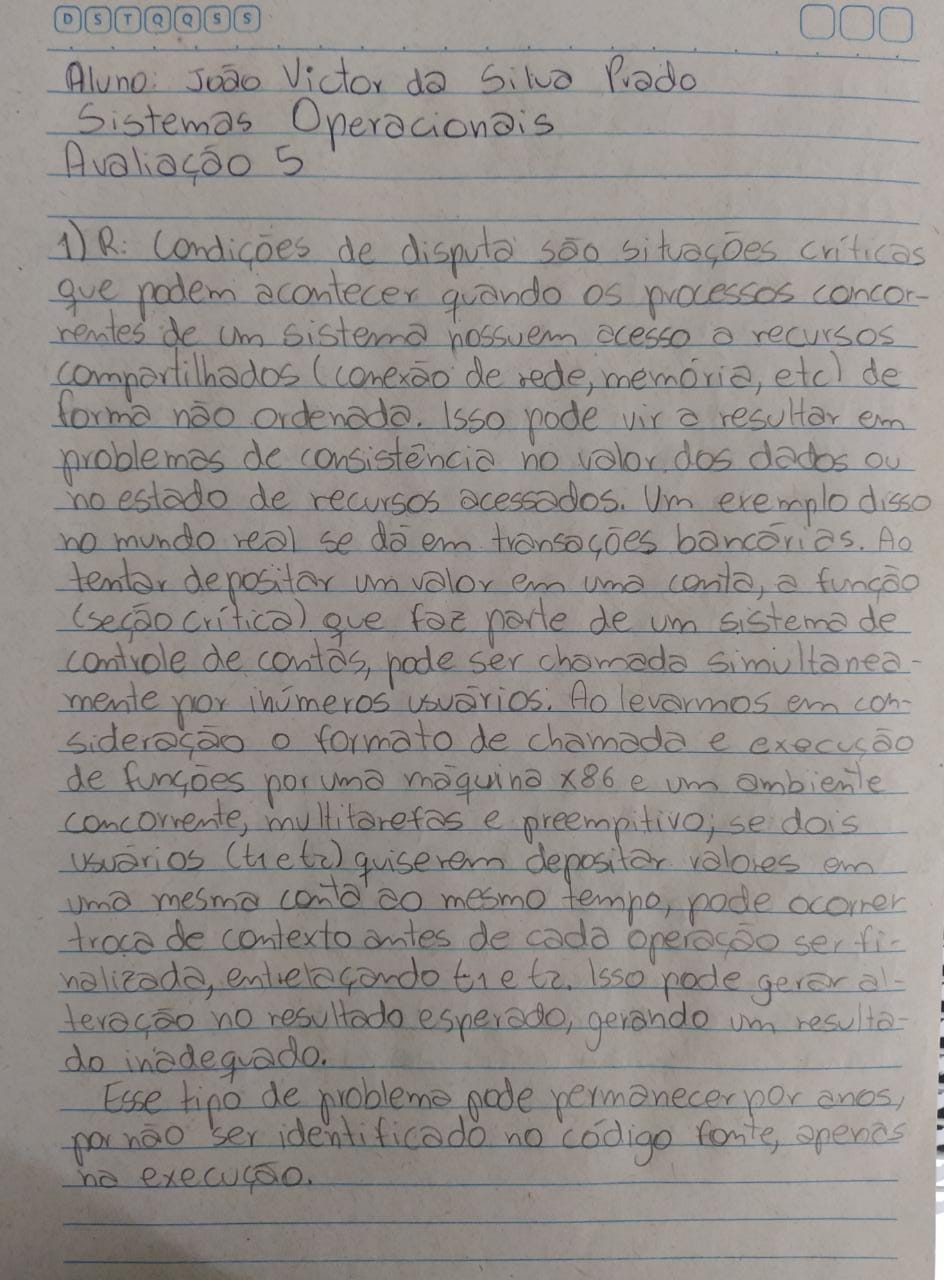 D S T Q Q S S
Aluno: João Victor da Silva Prado
Sistemas Operacionais
Avaliação 5
1) R: Condições de disputa são situações críticas
que podem acontecer quando os processos concor-
rentes de um sistema possuem acesso a recursos
compartilhados (conexão de rede, memória, etc) de
forma não ordenada. Isso pode vir a resultar em
problemas de consistência no valor dos dados ou
no estado de recursos acessados. Um exemplo disso
no mundo real se dá em transações bancárias. Ao
tentar depositar um valor em uma conta, a função
(seção crítica) que faz parte de um sistema de
controle de contas, pode ser chamada simultanea-
mente por inúmeros usuários. Ao levarmos em con-
sideração o formato de chamada e execução
de funções por uma máquina x86 e um ambiente
concorrente, multitarefas e preempitivo, se dois
usuários (t1 e t2) quiserem depositar valores em
uma mesma conta ao mesmo tempo, pode ocorrer
troca de contexto antes de cada operação ser fi-
nalizada, entrelaçando t1 e t2. Isso pode gerar al-
teração no resultado esperado, gerando um resulta-
do inadequado.
Esse tipo de problema pode permanecer por anos,
por não ser identificado no código fonte, apenas
na execução.